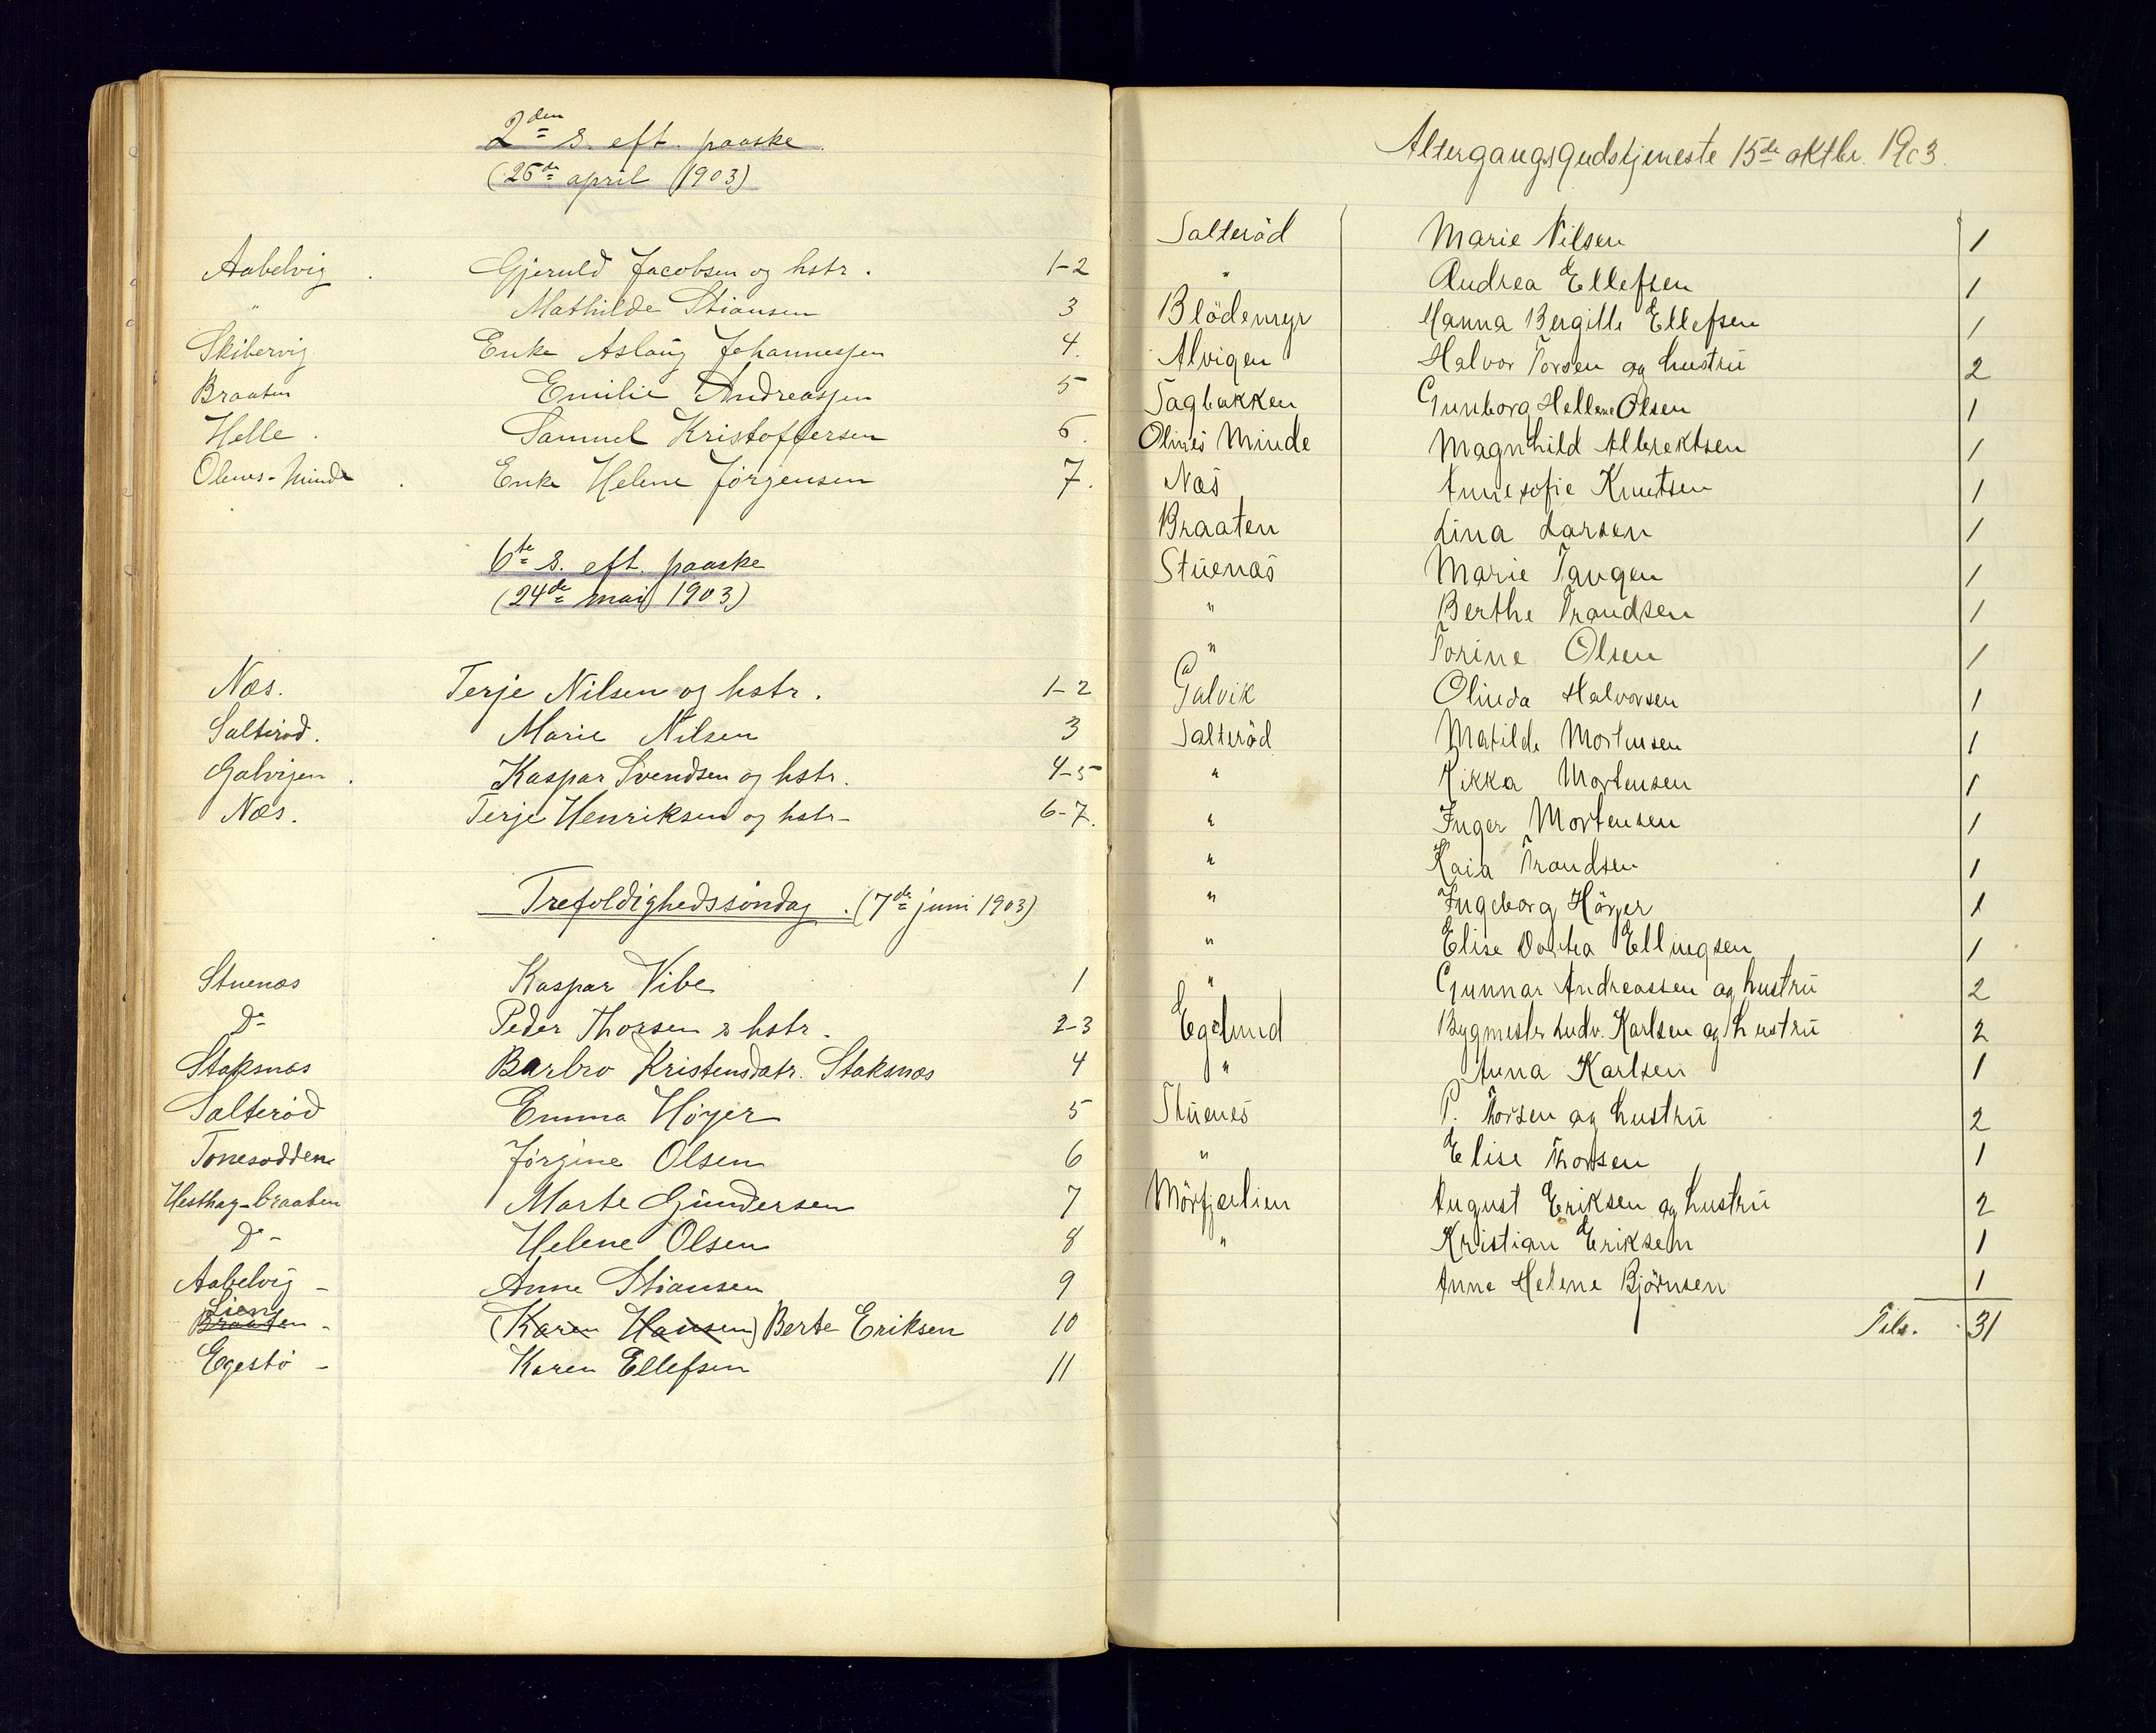 2den s. eft. paaske.
(26de april 1903)
Aabelvig . Gjeruld Jacobsen og hstr. 1-2
" Mathilde Stiansen 3
Skibervig Enke Aslaug Johannessen 4.
Braaten Emilie Andreassen 5
Helle . Samuel Kristoffersen 6.
Olenes-Minde . Enke Helene Jørgensen 7.
6te s. eft. paaske
(24de mai 1903)
Næs. Terje Nilsen og hstr. 1-2
Salterød. Marie Nilsen 3
Galvigen . Kaspar Svendsen og hstr. 4-5
Næs. Terje Henriksen og hstr- 6-7.
Trefoldighedssøndag. (7de juni 1903)
Stuenæs Kaspar Vibe 1
Do Peder Thorsen & hstr. 2-3
Staksnæs Barbro Kristensdatr. Staksnæs 4
Salterød Emma Høyer 5
Tonesodden Jørgine Olsen 6
Hesthag-braaten Marte Gundersen 7
Do - Helene Olsen 8
Aabelvig - Anne Stiansen 9
Lien
Braaten - (Karen Hansen) Berte Eriksen 10
Egestø - Karen Ellefsen 11
Altergangsgudstjeneste 15de oktbr. 1903.
Salteröd Marie Nilsen 1
" Andrea Ellefsen 1
Blödemyr Hanna Bergitte Ellefsen 1
Alvigen Halvor Torsen og hustru 2
Tagbakken Gunborg Hellene Olsen 1
Olines Minde Magnhild Albrektsen 1
Næs Anne sofie Knutsen 1
Braaten Lina Larsen 1
Stuenæs Marie Tangen 1
" Berthe Trondsen 1
" Torine Olsen 1
Galvik Olinda Halvorsen 1
Salteröd Matilde Mortensen 1
" Rikka Mortensen 1
" Inger Mortensen 1
" Kaia Trondsen 1
" Ingeborg Höyer 1
" Elise Dortea Ellingsen 1
" Gunnar Andreassen og hustru 2
Egelund Bygmester Ludv. Karlsen og hustru 2
" Anna Karlsen 1
Stuenes P. Torsen og hustru 2
" Elise Thorsen 1
Mörfjærlien August Eriksen og hustru 2
" Kristian Eriksen 1
Anne Helene Björnsen 1
Tils. 31